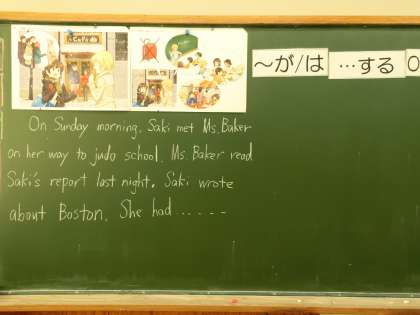 Cafe
～が/は …する
On Sunday morning, Saki met Ms. Baker
on her way to judo school. Ms. Baker read
Saki's report last night. Saki wrote
about Boston. She had .....